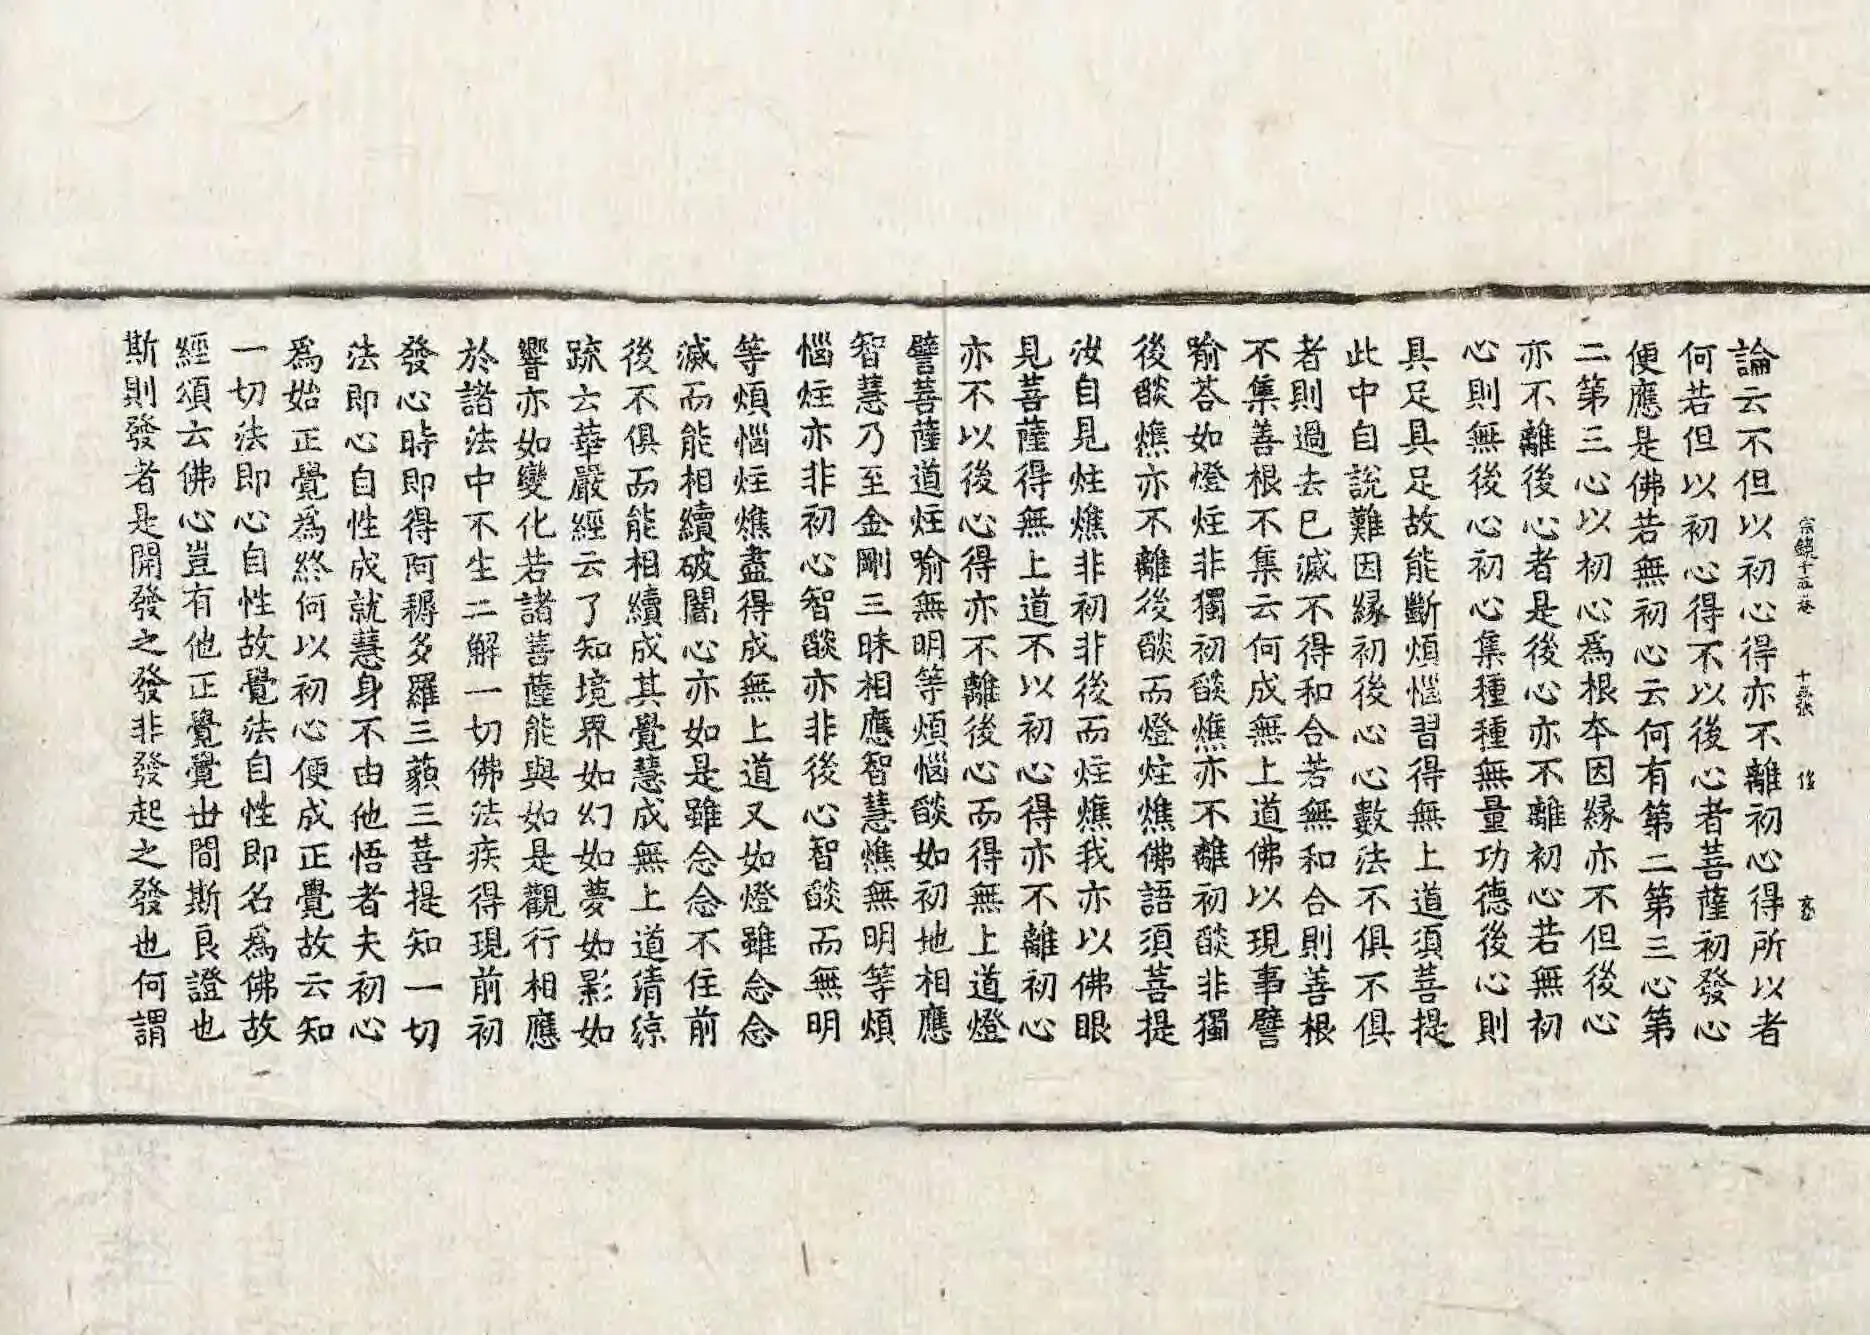 宗鏡十五卷 十五張
論云不但以初心得亦不離初心得所以者
何若但以初心得不以後心者菩薩初發心
便應是佛若無初心云何有第二第三心第
二第三心以初心爲根本因緣亦不但後心
亦不離後心者是後心亦不離初心若無初
心則無後心初心集種種無量功德後心則
具足具足故能斷煩惱習得無上道須菩提
此中自說難因緣初後心心數法不俱不俱
者則過去已滅不得和合若無和合則善根
不集善根不集云何成無上道佛以現事譬
喻荅如燈炷非獨初燄燋亦不離初燄非獨
後燄燋亦不離後燄而燈炷燋佛語須菩提
汝自見炷燋非初非後而炷燋我亦以佛眼
見菩薩得無上道不以初心得亦不離初心
亦不以後心得亦不離後心而得無上道燈
譬菩薩道炷喻無明等煩惱燄如初地相應
智慧乃至金剛三昧相應智慧燋無明等煩
惱炷亦非初心智燄亦非後心智燄而無明
等煩惱炷燋盡得成無上道又如燈雖念念
滅而能相續破闇心亦如是雖念念不住前
後不俱而能相續成其覺慧成無上道清涼
䟽云華嚴經云了知境界如幻如夢如影如
響亦如變化若諸菩薩能與如是觀行相應
於諸法中不生二解一切佛法疾得現前初
發心時即得阿耨多羅三藐三菩提知一切
法即心自性成就慧身不由他悟者夫初心
爲始正覺爲終何以初心便成正覺故云知
一切法即心自性故覺法自性即名爲佛故
經頌云佛心豈有他正覺覺世間斯良證也
斯則發者是開發之發非發起之發也何謂